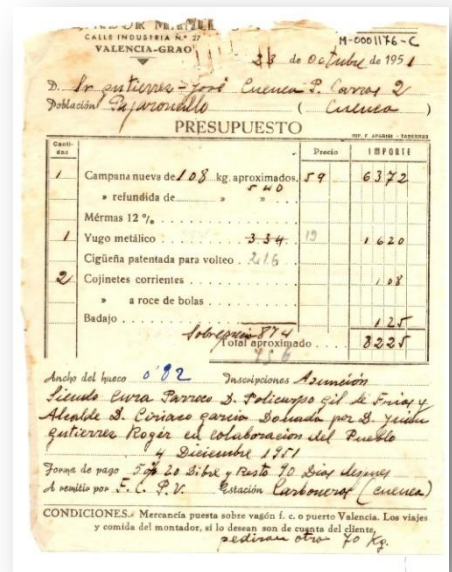 CALLE INDUSTRIA N.º 27
VALENCIA-GRAO
M-0001176-C
23 de Octubre de 1951
D. Sr gutierrez - José Cuenca P. Carros 2
Población Pajaroncillo ( Cuenca )
PRESUPUESTO
Canti-dad Precio IMPORTE
1 Campana nueva de 108 kg. aproximados. 59 6372
» refundida de » 540 »
Mérmas 12 %
1 Yugo metálico 334 19 1620
Cigüeña patentada para volteo 216
2 Cojinetes corrientes 108
» a roce de bolas
Badajo 125
Sobreprecio 874
Total aproximado 8225
756
Ancho del hueco 0'82 Inscripciones Asunción
Siendo Cura Parroco D. Policarpo gil de Frias y
Alcalde D. Ciriaco garcia Donada por D. Julian
gutierrez Roger en colaboracion del Pueblo
4 Diciembre 1951
Forma de pago 20 Libre y Resto 90 Dias
A remitir por F. C. P. V. Estación Carboneras (cuenca)
CONDICIONES.- Mercancía puesta sobre vagón f. c. o puerto Valencia. Los viajes
y comida del montador, si lo desean son de cuenta del cliente,
pediran otro 70 Kg.